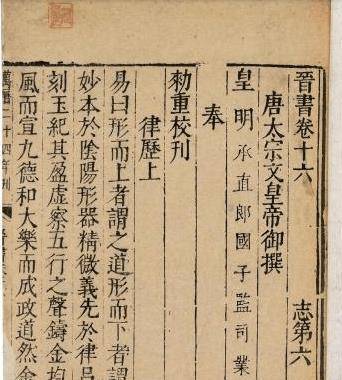 晉書卷十六 志第六
唐太宗文皇帝御撰
皇明承直郎國子監司業
奉
勅重校刊
律歷上
易曰形而上者謂之道形而下者謂
妙本於陰陽形器精微義先於律呂
刻玉紀其盈虛察五行之聲鑄金均
風而宣九德和大樂而成政道然金
萬曆二十四年刊